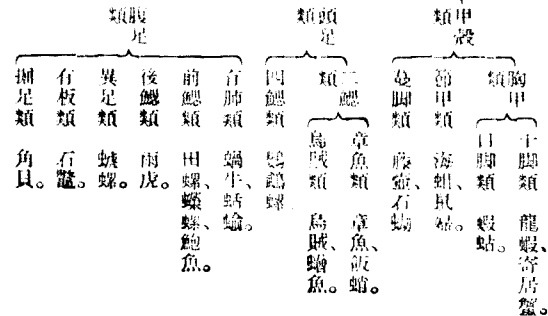 甲殼類
胸甲類
十脚類 龍蝦、寄居蟹。
口脚類 蝦蛄。
節甲類 海蛆、鼠婦。
蔓脚類 藤壺、石蜐
頭足類
二鰓類
章魚類 章魚、飯蛸。
烏賊類 烏賊、魚。
四鰓類 鸚鵡螺
腹足類
有肺類 蝸牛、蛞蝓。
前鰓類 田螺、蠑螺、鮑魚。
後鰓類 雨虎。
異足類 螺。
有板類 石鼈。
掘足類 角貝。